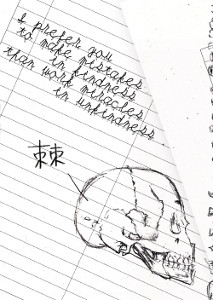 I prefer you
to make mistakes
in kindness
than work miracles
in unkindness.
棘